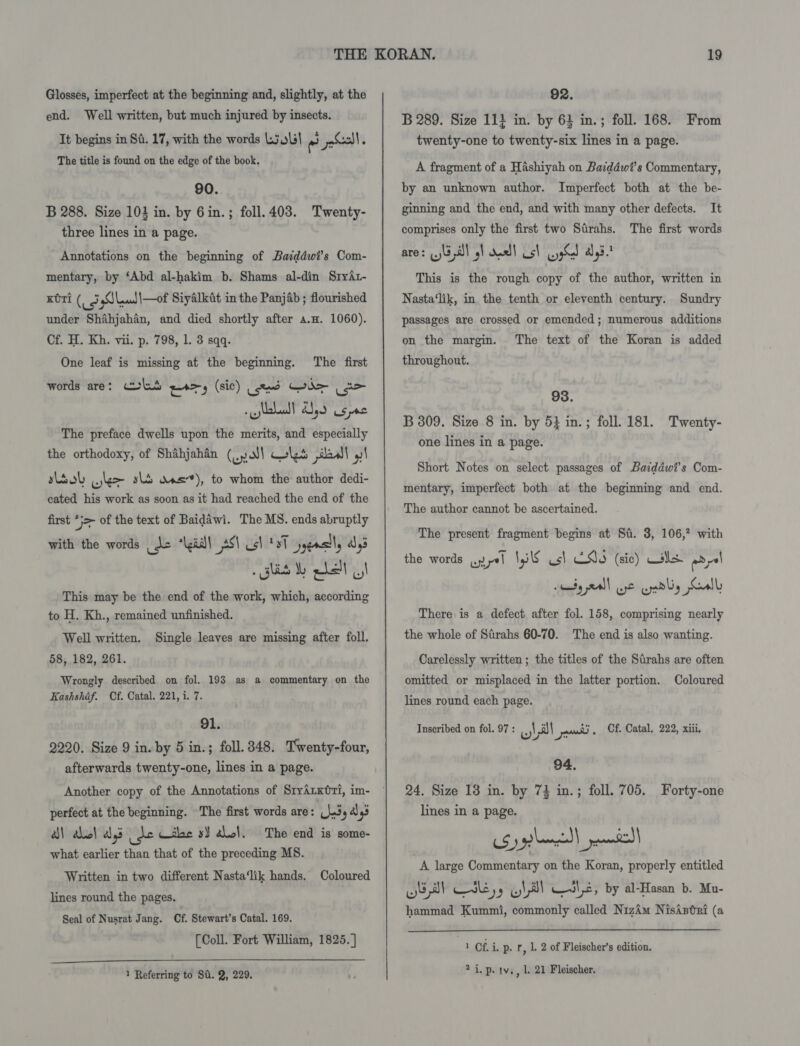 THE KORAN. 19
Glosses, imperfect at the beginning and, slightly, at the
end. Well written, but much injured by insects.
It begins in Sū. 17, with the words المتكبر ثم افادتنا.
The title is found on the edge of the book.
90.
B 288. Size 10¾ in. by 6 in.; foll. 403. Twenty-
three lines in a page.
Annotations on the beginning of Baiḍáwí's Com-
mentary, by ‘Abd al-hakím b. Shams al-dín SIYÁL-
KÚTÍ (السيالكوتى—of Siyálkút in the Panjáb; flourished
under Sháhjahán, and died shortly after A.H. 1060).
Cf. H. Kh. vii. p. 798, l. 3 sqq.
One leaf is missing at the beginning. The first
words are: حتى جذب ضبعى (sic) وجمع شتات
عمرى دولة السلطان.
The preface dwells upon the merits, and especially
the orthodoxy, of Sháhjahán (ابو المظفر شهاب الدين
محمد شاه جهان بادشاه), to whom the author dedi-
cated his work as soon as it had reached the end of the
first جزء of the text of Baiḍáwí. The MS. ends abruptly
with the words قوله والجمهور آه¹ اى اكثر الفقهاء على
ان الخلع بلا شقاق.
This may be the end of the work, which, according
to H. Kh., remained unfinished.
Well written. Single leaves are missing after foll.
58, 182, 261.
Wrongly described on fol. 193 as a commentary on the
Kashsháf. Cf. Catal. 221, i. 7.
91.
2220. Size 9 in. by 5 in.; foll. 348. Twenty-four,
afterwards twenty-one, lines in a page.
Another copy of the Annotations of SIYÁLKÚTÍ, im-
perfect at the beginning. The first words are: قوله وقيل
اصله لاه عطف على قوله اصله اله. The end is some-
what earlier than that of the preceding MS.
Written in two different Nasta‘lík hands. Coloured
lines round the pages.
Seal of Nuṣrat Jang. Cf. Stewart's Catal. 169.
[Coll. Fort William, 1825.]
¹ Referring to Sú. 2, 229.
92.
B 289. Size 11¼ in. by 6½ in.; foll. 168. From
twenty-one to twenty-six lines in a page.
A fragment of a Ḥáshiyah on Baiḍáwí's Commentary,
by an unknown author. Imperfect both at the be-
ginning and the end, and with many other defects. It
comprises only the first two Súrahs. The first words
are: قوله ليكون اى العبد او الفرقان.¹
This is the rough copy of the author, written in
Nasta‘lík, in the tenth or eleventh century. Sundry
passages are crossed or emended; numerous additions
on the margin. The text of the Koran is added
throughout.
93.
B 309. Size 8 in. by 5¼ in.; foll. 181. Twenty-
one lines in a page.
Short Notes on select passages of Baiḍáwí's Com-
mentary, imperfect both at the beginning and end.
The author cannot be ascertained.
The present fragment begins at Sú. 3, 106,² with
the words امرهم خلاف (sic) ذلك اى كانوا آمرين
بالمنكر وناهين عن المعروف.
There is a defect after fol. 158, comprising nearly
the whole of Súrahs 60-70. The end is also wanting.
Carelessly written; the titles of the Súrahs are often
omitted or misplaced in the latter portion. Coloured
lines round each page.
Inscribed on fol. 97: تفسير القرآن. Cf. Catal. 222, xiii.
94.
24. Size 13 in. by 7¾ in.; foll. 705. Forty-one
lines in a page.
التفسير النيسابورى
A large Commentary on the Koran, properly entitled
غرائب القرآن ورغائب الفرقان, by al-Hasan b. Mu-
hammad Kummí, commonly called NIZÁM NÍSÁBÚRÍ (a
¹ Cf. i. p. ٣, l. 2 of Fleischer's edition.
² i. p. ١٧٠, l. 21 Fleischer.